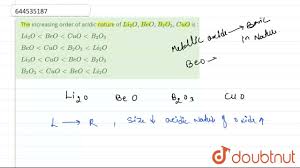 644535187
The increasing order of acidic nature of Li₂O, BeO, B₂O₃, CuO is :
Li₂O < BeO < CuO < B₂O₃
BeO < CuO < B₂O₃ < Li₂O
Li₂O < CuO < BeO < B₂O₃
B₂O₃ < CuO < BeO < Li₂O
Metallic oxide → Basic
in Nature
BeO →
Li₂O BeO B₂O₃ CuO
L → R , Size ↓ acidic Nature of oxide ↑
doubtnut